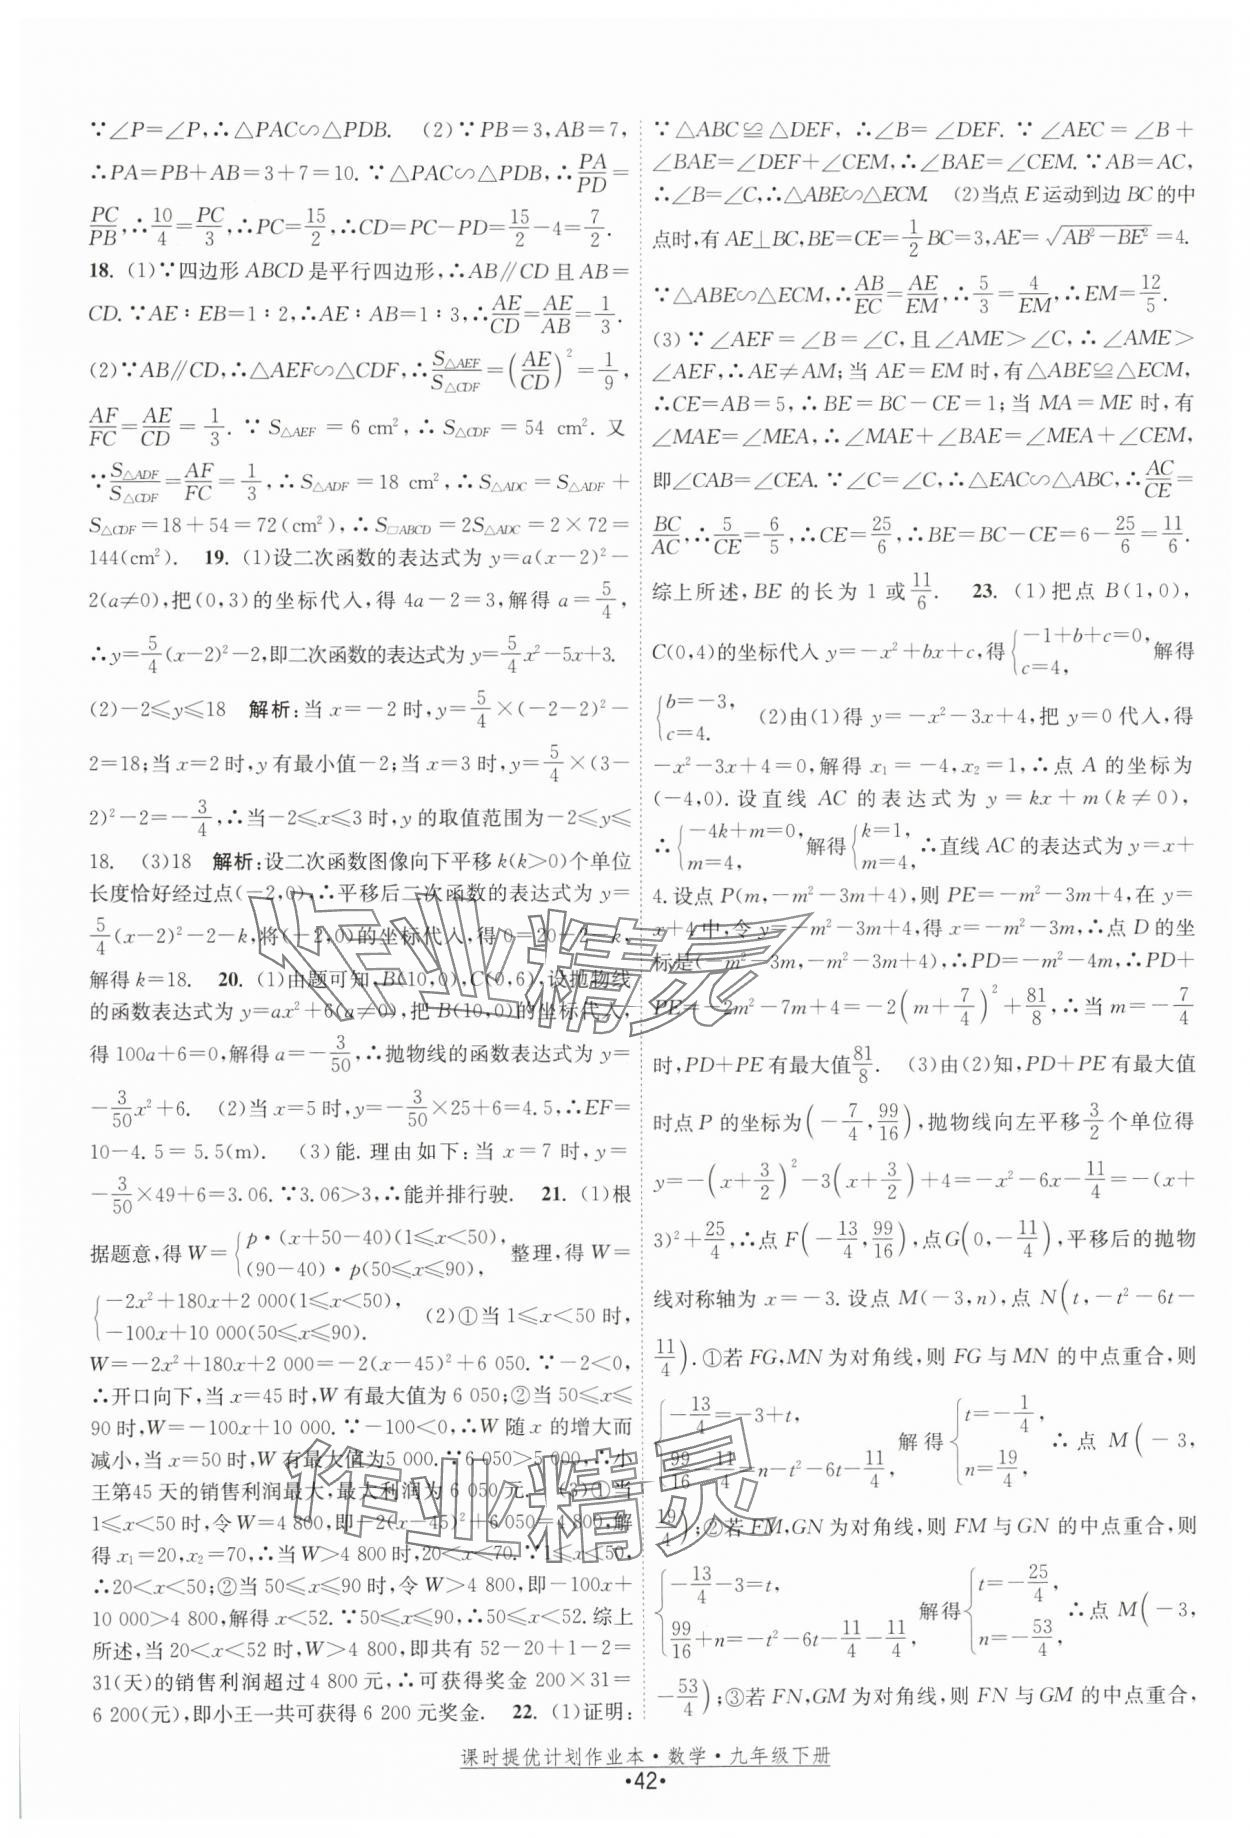 ∵∠P=∠P,∴△PAC∽△PDB. (2)∵PB=3,AB=7,
∴PA=PB+AB=3+7=10.∵△PAC∽△PDB,∴PA/PD=
PC/PB,∴10/4=PC/3,∴PC=15/2,∴CD=PC-PD=15/2-4=7/2.
18. (1)∵四边形ABCD是平行四边形,∴AB∥CD且AB=
CD.∵AE∶EB=1∶2,∴AE∶AB=1∶3,∴AE/CD=AE/AB=1/3.
(2)∵AB∥CD,∴△AEF∽△CDF,∴S△AEF/S△CDF=(AE/CD)²=1/9,
AF/FC=AE/CD=1/3.∵S△AEF=6 cm²,∴S△CDF=54 cm².又
∵S△ADF/S△CDF=AF/FC=1/3,∴S△ADF=18 cm²,∴S△ADC=S△ADF+
S△CDF=18+54=72(cm²),∴S□ABCD=2S△ADC=2×72=
144(cm²). 19. (1)设二次函数的表达式为y=a(x-2)²-
2(a≠0),把(0,3)的坐标代入,得4a-2=3,解得a=5/4,
∴y=5/4(x-2)²-2,即二次函数的表达式为y=5/4x²-5x+3.
(2)-2≤y≤18 解析:当x=-2时,y=5/4×(-2-2)²-
2=18;当x=2时,y有最小值-2;当x=3时,y=5/4×(3-
2)²-2=-3/4,∴当-2≤x≤3时,y的取值范围为-2≤y≤
18. (3)18 解析:设二次函数图像向下平移k(k>0)个单位
长度恰好经过点(-2,0),∴平移后二次函数的表达式为y=
5/4(x-2)²-2-k,将(-2,0)的坐标代入,得0=20-2-k,
解得k=18. 20. (1)由题可知,B(10,0),C(0,6),设抛物线
的函数表达式为y=ax²+6(a≠0),把B(10,0)的坐标代入,
得100a+6=0,解得a=-3/50,∴抛物线的函数表达式为y=
-3/50x²+6. (2)当x=5时,y=-3/50×25+6=4.5,∴EF=
10-4.5=5.5(m). (3)能.理由如下:当x=7时,y=
-3/50×49+6=3.06.∵3.06>3,∴能并排行驶. 21. (1)根
据题意,得W={p·(x+50-40)(1≤x<50),(90-40)·p(50≤x≤90),整理,得W=
{-2x²+180x+2 000(1≤x<50),-100x+10 000(50≤x≤90). (2)①当1≤x<50时,
W=-2x²+180x+2 000=-2(x-45)²+6 050.∵-2<0,
∴开口向下,当x=45时,W有最大值为6 050;②当50≤x≤
90时,W=-100x+10 000.∵-100<0,∴W随x的增大而
减小,当x=50时,W有最大值为5 000.∵6 050>5 000,∴小
王第45天的销售利润最大,最大利润为6 050元. (3)①当
1≤x<50时,令W=4 800,即-2(x-45)²+6 050=4 800,解
得x₁=20,x₂=70,∴当W>4 800时,20<x<70.∵1≤x<50,
∴20<x<50;②当50≤x≤90时,令W>4 800,即-100x+
10 000>4 800,解得x<52.∵50≤x≤90,∴50≤x<52.综上
所述,当20<x<52时,W>4 800,即共有52-20+1-2=
31(天)的销售利润超过4 800元,∴可获得奖金200×31=
6 200(元),即小王一共可获得6 200元奖金. 22. (1)证明:
∵△ABC≌△DEF,∴∠B=∠DEF.∵∠AEC=∠B+
∠BAE=∠DEF+∠CEM,∴∠BAE=∠CEM.∵AB=AC,
∴∠B=∠C,∴△ABE∽△ECM. (2)当点E运动到边BC的中
点时,有AE⊥BC,BE=CE=1/2BC=3,AE=√(AB²-BE²)=4.
∵△ABE∽△ECM,∴AB/EC=AE/EM,∴5/3=4/EM,∴EM=12/5.
(3)∵∠AEF=∠B=∠C,且∠AME>∠C,∴∠AME>
∠AEF,∴AE≠AM;当AE=EM时,有△ABE≌△ECM,
∴CE=AB=5,∴BE=BC-CE=1;当MA=ME时,有
∠MAE=∠MEA,∴∠MAE+∠BAE=∠MEA+∠CEM,
即∠CAB=∠CEA.∵∠C=∠C,∴△EAC∽△ABC,∴AC/CE=
BC/AC,∴5/CE=6/5,∴CE=25/6,∴BE=BC-CE=6-25/6=11/6.
综上所述,BE的长为1或11/6. 23. (1)把点B(1,0),
C(0,4)的坐标代入y=-x²+bx+c,得{-1+b+c=0,c=4,解得
{b=-3,c=4. (2)由(1)得y=-x²-3x+4,把y=0代入,得
-x²-3x+4=0,解得x₁=-4,x₂=1,∴点A的坐标为
(-4,0).设直线AC的表达式为y=kx+m(k≠0),
∴{-4k+m=0,m=4,解得{k=1,m=4,∴直线AC的表达式为y=x+
4.设点P(m,-m²-3m+4),则PE=-m²-3m+4,在y=
x+4中,令y=-m²-3m+4,得x=-m²-3m,∴点D的坐
标是(-m²-3m,-m²-3m+4),∴PD=-m²-4m,∴PD+
PE=-2m²-7m+4=-2(m+7/4)²+81/8,∴当m=-7/4
时,PD+PE有最大值81/8. (3)由(2)知,PD+PE有最大值
时点P的坐标为(-7/4,99/16),抛物线向左平移3/2个单位得
y=-(x+3/2)²-3(x+3/2)+4=-x²-6x-11/4=-(x+
3)²+25/4,∴点F(-13/4,99/16),点G(0,-11/4),平移后的抛物
线对称轴为x=-3.设点M(-3,n),点N(t,-t²-6t-
11/4).①若FG,MN为对角线,则FG与MN的中点重合,则
{-13/4=-3+t,99/16-11/4=n-t²-6t-11/4,解得{t=-1/4,n=19/4,∴点M(-3,
19/4);②若FM,GN为对角线,则FM与GN的中点重合,则
{-13/4-3=t,99/16+n=-t²-6t-11/4-11/4,解得{t=-25/4,n=-53/4,∴点M(-3,
-53/4);③若FN,GM为对角线,则FN与GM的中点重合,
课时提优计划作业本·数学·九年级下册
·42·
作业精灵
作业精灵